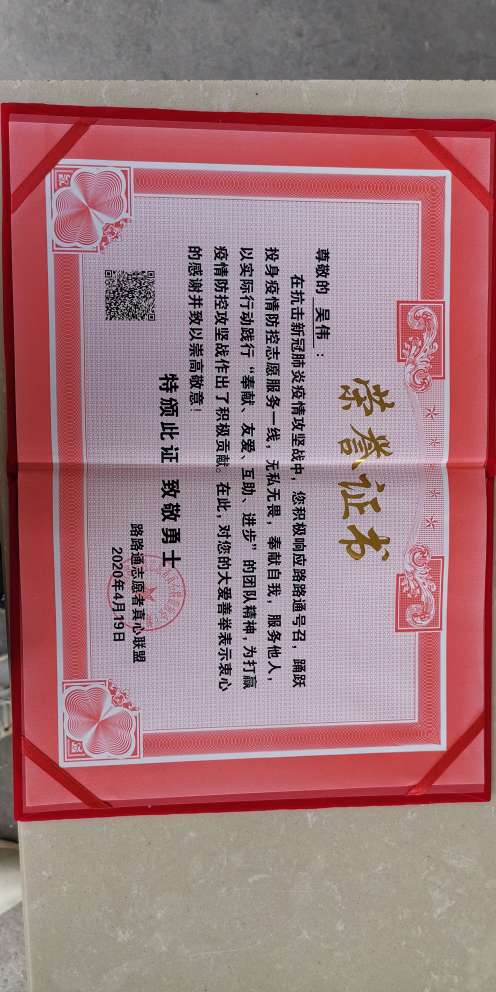 荣誉证书
尊敬的 吴伟 ：
在抗击新冠肺炎疫情攻坚战中，您积极响应路路通号召，踊跃
投身疫情防控志愿服务一线，无私无畏，奉献自我，服务他人，
以实际行动践行“奉献、友爱、互助、进步”的团队精神，为打赢
疫情防控攻坚战作出了积极贡献。在此，对您的大爱善举表示衷心
的感谢并致以崇高敬意！
特颁此证 致敬勇士
路路通志愿者真心联盟
2020年4月19日